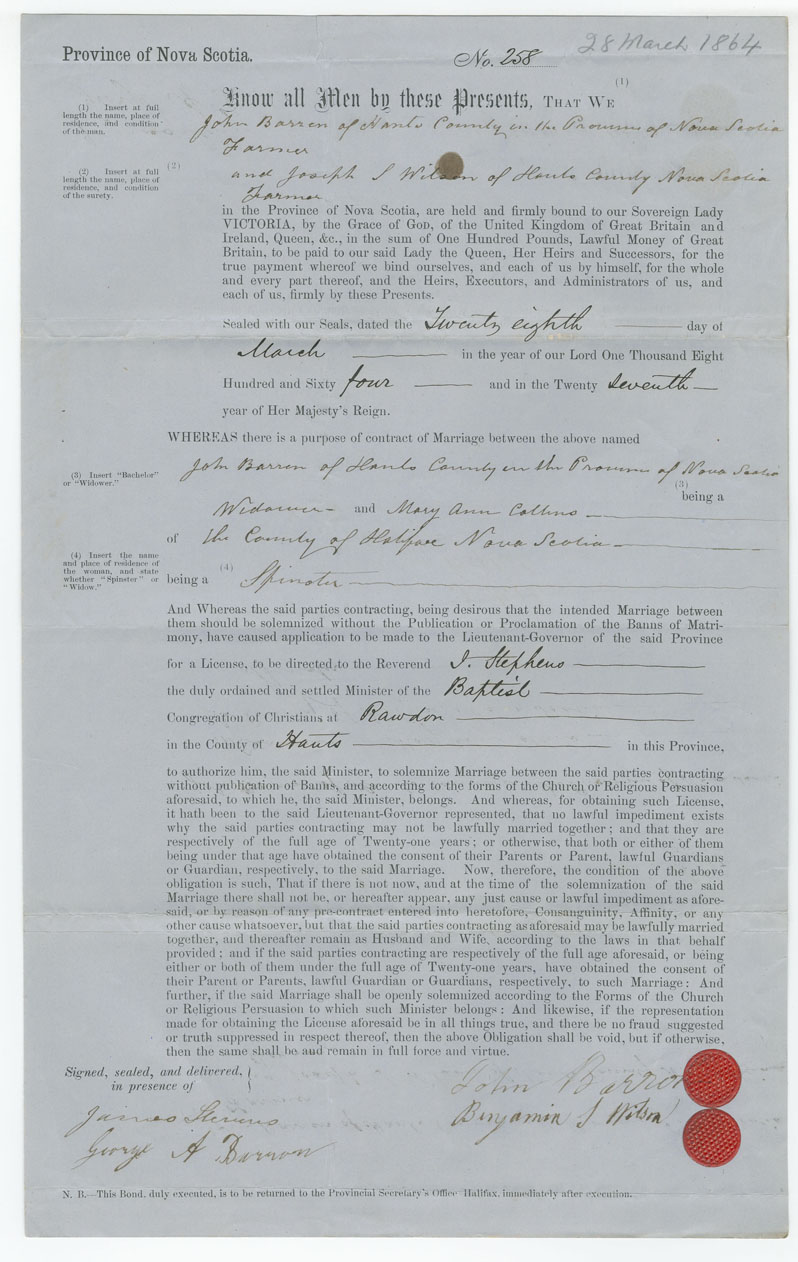 28 March 1864
Province of Nova Scotia.
No. 258
Know all Men by these Presents, THAT WE (1)
(1) Insert at full
length the name, place of
residence, and condition
of the man.
John Barren of Hants County in the Province of Nova Scotia
Farmer
(2) Insert at full
length the name, place of
residence, and condition
of the surety.
(2)
and Joseph S Wilson of Hants County Nova Scotia
Farmer
in the Province of Nova Scotia, are held and firmly bound to our Sovereign Lady
VICTORIA, by the Grace of GOD, of the United Kingdom of Great Britain and
Ireland, Queen, &c., in the sum of One Hundred Pounds, Lawful Money of Great
Britain, to be paid to our said Lady the Queen, Her Heirs and Successors, for the
true payment whereof we bind ourselves, and each of us by himself, for the whole
and every part thereof, and the Heirs, Executors, and Administrators of us, and
each of us, firmly by these Presents.
Sealed with our Seals, dated the Twenty eighth day of
March in the year of our Lord One Thousand Eight
Hundred and Sixty four and in the Twenty seventh
year of Her Majesty's Reign.
WHEREAS there is a purpose of contract of Marriage between the above named
John Barren of Hants County in the Province of Nova Scotia
(3) Insert "Bachelor"
or "Widower."
(3)
being a
Widower and Mary Ann Collins
of the County of Halifax Nova Scotia
(4) Insert the name
and place of residence of
the woman, and state
whether "Spinster" or
"Widow."
being a (4) Spinster
And Whereas the said parties contracting, being desirous that the intended Marriage between
them should be solemnized without the Publication or Proclamation of the Banns of Matri-
mony, have caused application to be made to the Lieutenant-Governor of the said Province
for a License, to be directed to the Reverend J. Stephens
the duly ordained and settled Minister of the Baptist
Congregation of Christians at Rawdon
in the County of Hants in this Province,
to authorize him, the said Minister, to solemnize Marriage between the said parties contracting
without publication of Banns, and according to the forms of the Church or Religious Persuasion
aforesaid, to which he, the said Minister, belongs. And whereas, for obtaining such License,
it hath been to the said Lieutenant-Governor represented, that no lawful impediment exists
why the said parties contracting may not be lawfully married together; and that they are
respectively of the full age of Twenty-one years; or otherwise, that both or either of them
being under that age have obtained the consent of their Parents or Parent, lawful Guardians
or Guardian, respectively, to the said Marriage. Now, therefore, the condition of the above
obligation is such, That if there is not now, and at the time of the solemnization of the said
Marriage there shall not be, or hereafter appear, any just cause or lawful impediment as afore-
said, or by reason of any pre-contract entered into heretofore, Consanguinity, Affinity, or any
other cause whatsoever, but that the said parties contracting as aforesaid may be lawfully married
together, and thereafter remain as Husband and Wife, according to the laws in that behalf
provided; and if the said parties contracting are respectively of the full age aforesaid, or being
either or both of them under the full age of Twenty-one years, have obtained the consent of
their Parent or Parents, lawful Guardian or Guardians, respectively, to such Marriage: And
further, if the said Marriage shall be openly solemnized according to the Forms of the Church
or Religious Persuasion to which such Minister belongs: And likewise, if the representation
made for obtaining the License aforesaid be in all things true, and there be no fraud suggested
or truth suppressed in respect thereof, then the above Obligation shall be void, but if otherwise,
then the same shall be and remain in full force and virtue.
Signed, sealed, and delivered,
in presence of
John Barron
Benjamin S Wilson
James Stevens
George A Barron
N. B.—This Bond, duly executed, is to be returned to the Provincial Secretary's Office Halifax, immediately after execution.